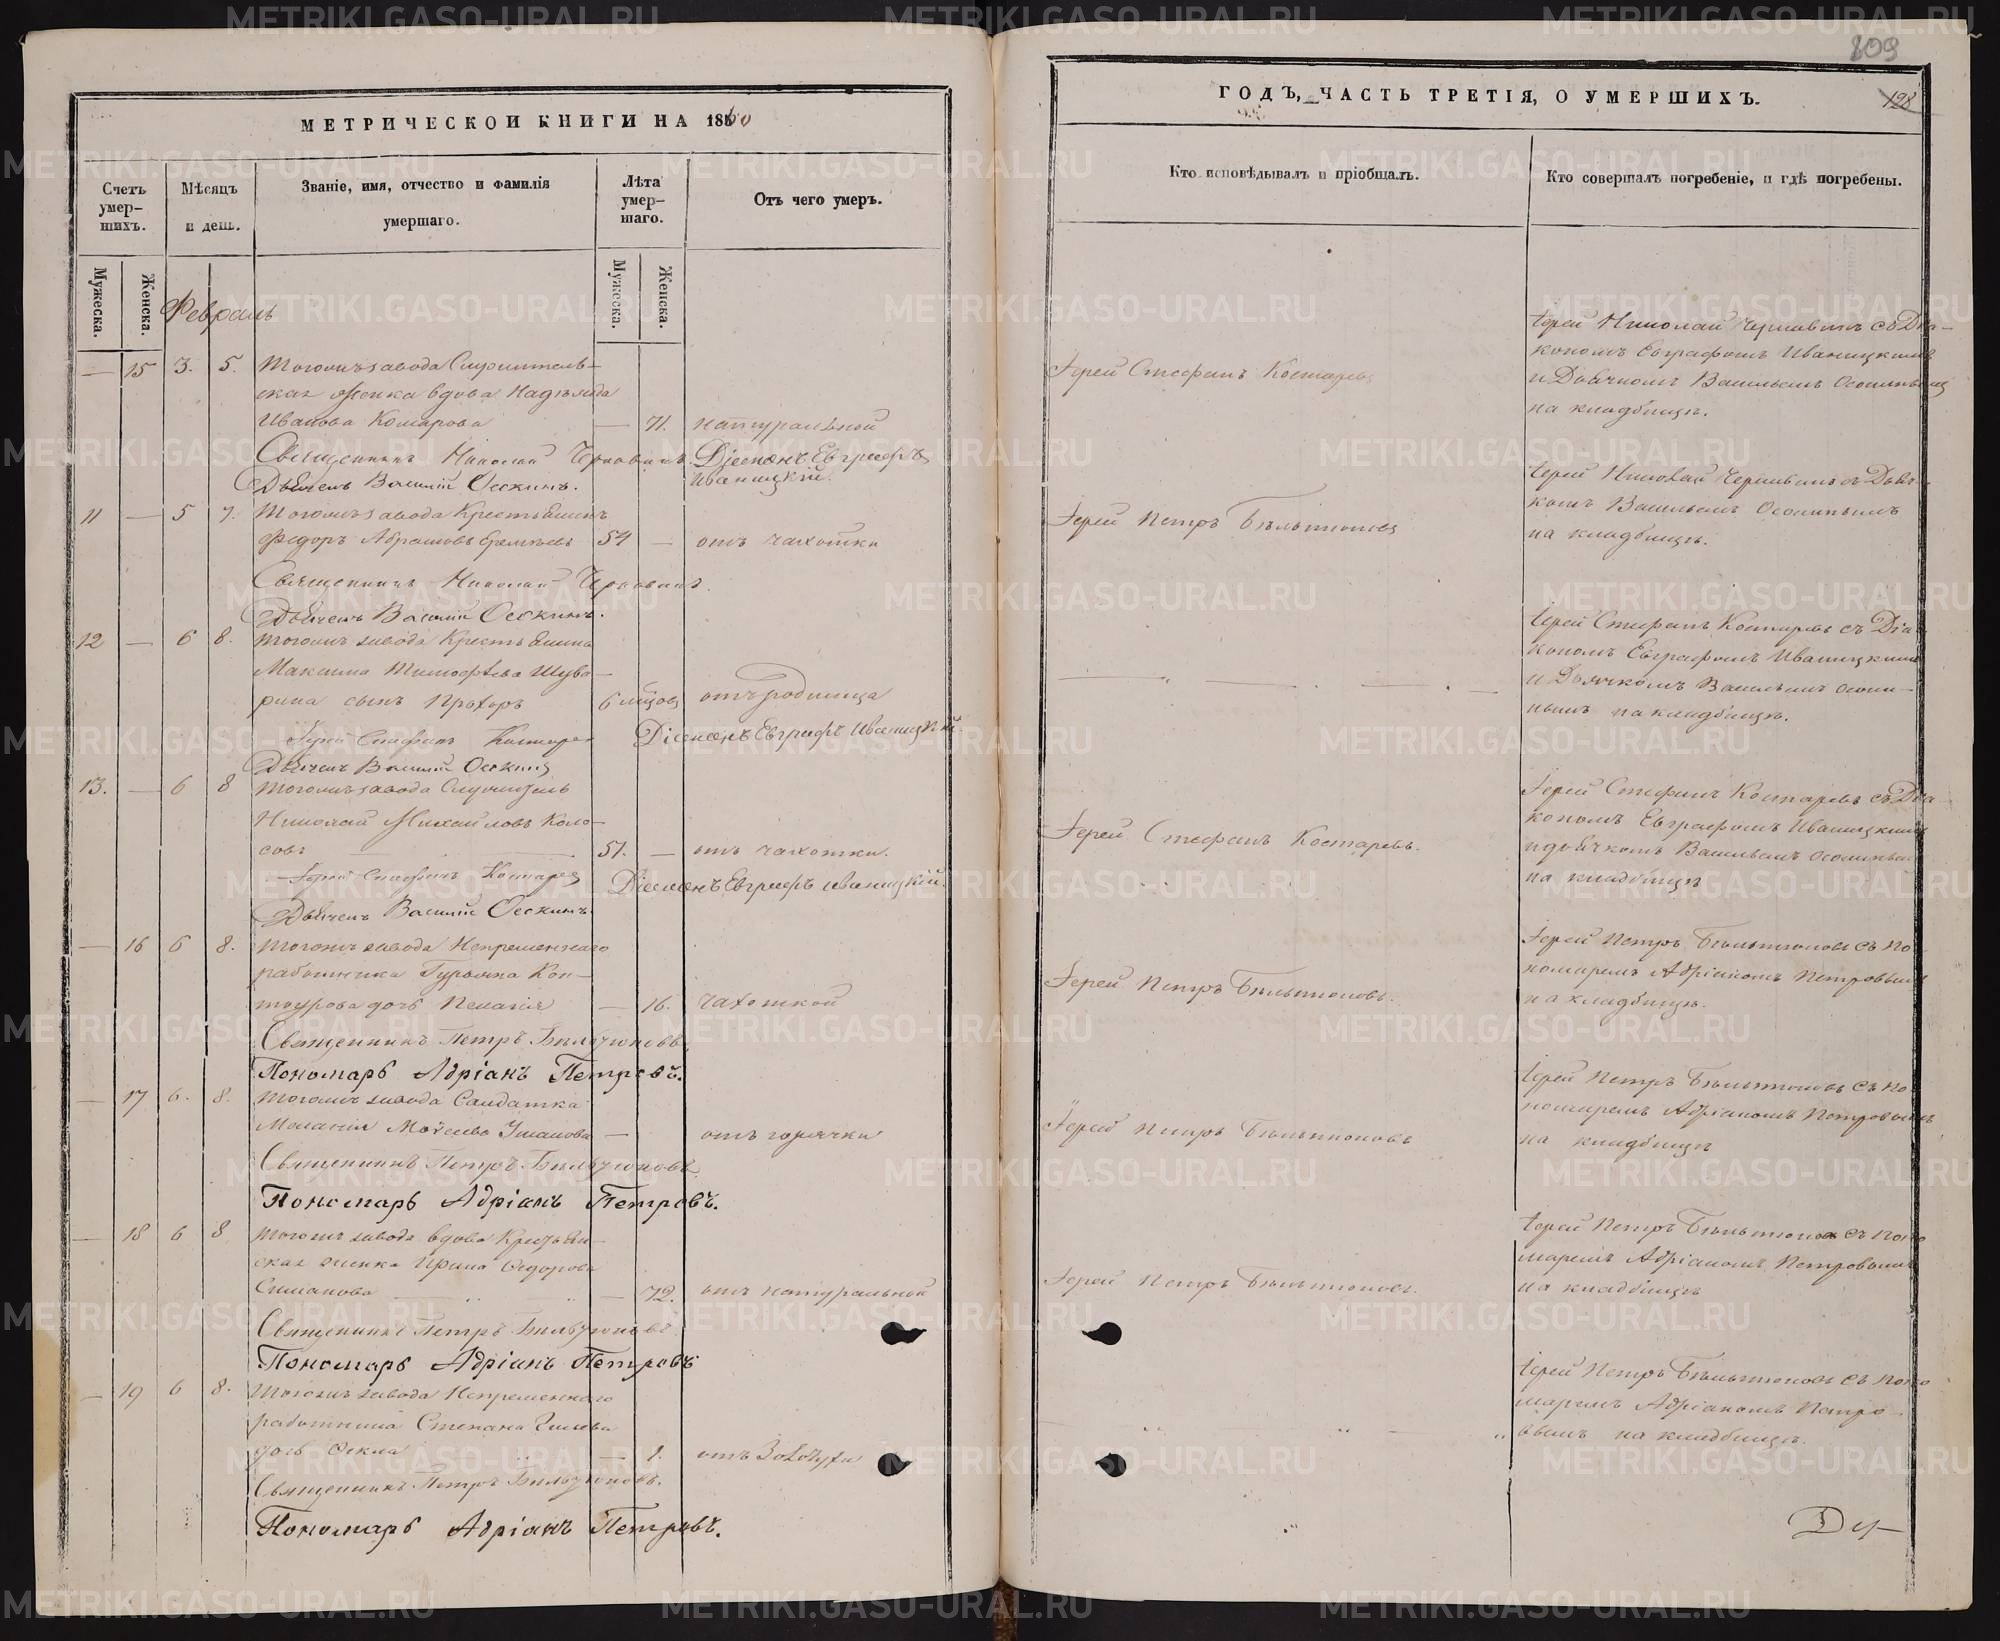 МЕТРИЧЕСКОЙ КНИГИ НА 1860
Счетъ умер-
шихъ.
Мѣсяцъ
и день.
Званіе, имя, отчество и фамилія
умершаго.
Лѣта
умер-
шаго.
Отъ чего умеръ.
Мужеска.
Женска.
Мужеска.
Женска.
Февраль
— 15 3. 5. Тогожъ завода Служитель-
ская женка вдова Надѣжда
Иванова Комарова — 71. натуральной
Священникъ Николай Діаконъ Евграфъ
Иваницкій.
Дьячекъ Василій Оскинъ.
11 — 5 7. Тогожъ завода Крестьянинъ
Федоръ Абрамовъ 54 — отъ чахотки
Священникъ Николай
Дьячекъ Василій Оскинъ.
12 — 6 8. Тогожъ завода Крестьянина
Максима Тимофѣева Шува-
рина сынъ Прохоръ 6 мѣцовъ отъ родимца
Іерей Стефанъ Костаревъ Діаконъ Евграфъ Иваницкій.
Дьячекъ Василій Оскинъ
13. — 6 8 Тогожъ завода Служитель
Николай Михайловъ Коло-
совъ 51. — отъ чахотки.
Іерей Стефанъ Костаревъ Діаконъ Евграфъ Иваницкій.
Дьячекъ Василій Оскинъ.
— 16 6 8. Тогожъ завода Непременнаго
работника Гурьяна Кон-
тоурова дочь Пелагія — 16. чахоткой
Священникъ Петръ Бѣльтюковъ
Пономарь Адріанъ Петровъ.
— 17 6. 8. Тогожъ завода Салдатка
Меланія Моѵсеева — отъ горячки
Священникъ Петръ Бѣльтюковъ
Пономарь Адріанъ Петровъ.
— 18 6 8 Тогожъ завода вдова Крестьян-
ская женка Ирина Ѳедорова
Симанова — 72. отъ натуральной
Священникъ Петръ Бѣльтюковъ
Пономарь Адріанъ Петровъ
— 19 6 8. Тогожъ завода Непременнаго
работника Степана
дочь Ѳекла — 1. отъ Золотухи
Священникъ Петръ Бѣльтюковъ.
Пономарь Адріанъ Петровъ.
109
ГОДЪ, ЧАСТЬ ТРЕТІЯ, О УМЕРШИХЪ.
198
Кто исповѣдывалъ и пріобщалъ.
Кто совершалъ погребеніе, и гдѣ погребены.
Іерей Стефанъ Костаревъ
Іерей Николай съ Діа-
кономъ Евграфомъ Иваницкимъ
и Дьячкомъ Васильемъ Оскинымъ
на кладбищѣ.
Іерей Петръ Бѣльтюковъ
Іерей Николай съ Дьяч-
комъ Васильемъ Оскинымъ
на кладбищѣ.
Іерей Стефанъ Костаревъ съ Діа-
кономъ Евграфомъ Иваницкимъ
и Дьячкомъ Васильемъ Оски-
нымъ на кладбищѣ.
Іерей Стефанъ Костаревъ.
Іерей Стефанъ Костаревъ съ Діа-
кономъ Евграфомъ Иваницкимъ
и дьячкомъ Васильемъ Оскинымъ
на кладбищѣ
Іерей Петръ Бѣльтюковъ.
Іерей Петръ Бѣльтюковъ съ По-
номаремъ Адріаномъ Петровымъ
на кладбищѣ.
Іерей Петръ Бѣльтюковъ
Іерей Петръ Бѣльтюковъ съ По-
номаремъ Адріаномъ Петровымъ
на кладбищѣ
Іерей Петръ Бѣльтюковъ.
Іерей Петръ Бѣльтюковъ съ Поно-
маремъ Адріаномъ Петровымъ
на кладбищѣ
Іерей Петръ Бѣльтюковъ съ Поно-
маремъ Адріаномъ Петро-
вымъ на кладбищѣ.
METRIKI.GASO-URAL.RU